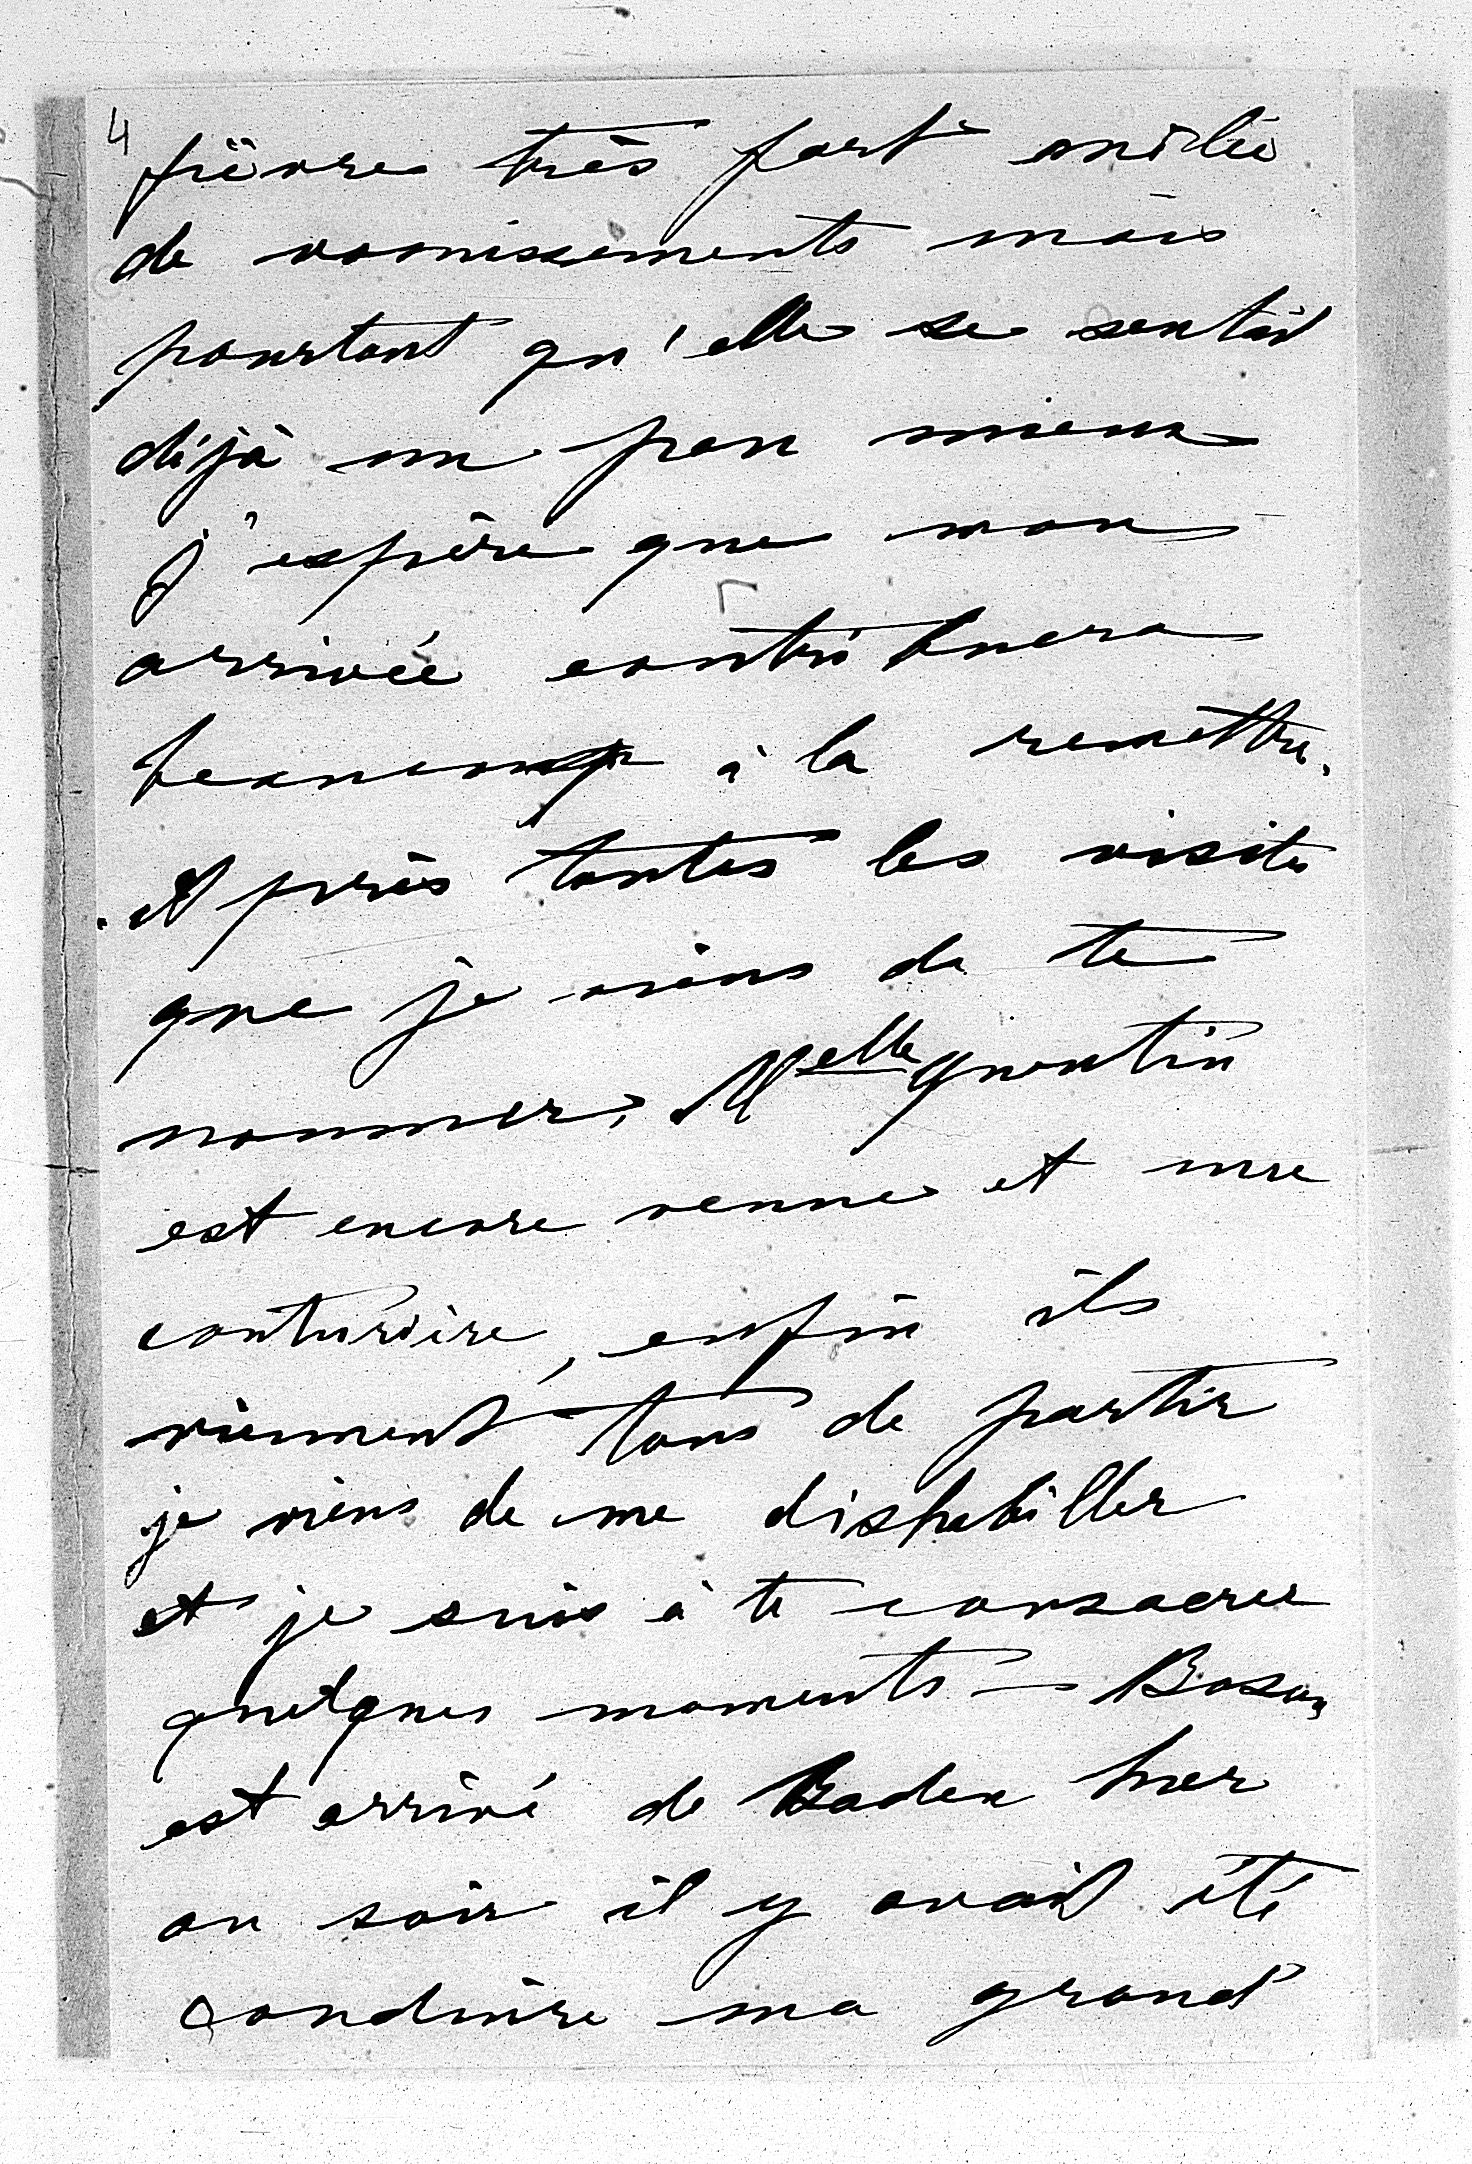 4
fièvre très fort mêlée
de vomissements mais
pourtant qu'elle se sentait
déjà un peu mieux
j'espère que mon
arrivée contribuera
beaucoup à la remettre.
Après toutes les visites
que je viens de te
nommer, Melle Quentin
est encore venue et une
couturière, enfin ils
viennent tous de partir
je viens de me déshabiller
et je suis à te consacrer
quelques moments — Boson
est arrivé de Baden hier
au soir il y avait été
conduire ma grand